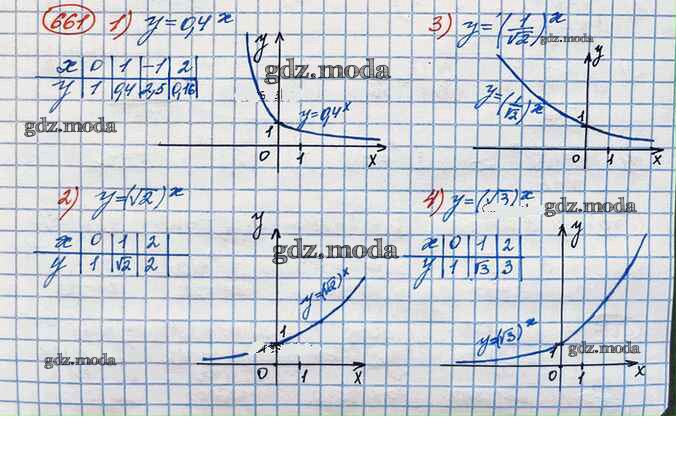 661 1) y = 0,4^x
x 0 1 -1 2
y 1 0,4 2,5 0,16
gdz.moda
y
gdz.moda
y = 0,4^x
1
0 1 x
3) y = (1/√2)^x
gdz.moda
y
y = (1/√2)^x
gdz.moda
1
0 1 x
2) y = (√2)^x
x 0 1 2
y 1 √2 2
gdz.moda
y
gdz.moda
y = (√2)^x
1
0 1 x
4) y = (√3)^x
gdz.moda
x 0 1 2
y 1 √3 3
y
gdz.moda
y = (√3)^x
1
gdz.moda
0 1 x